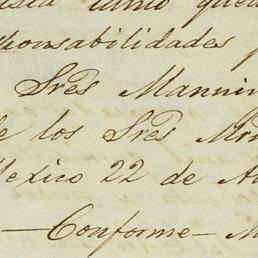 como que
responsabilidades
Sres Mannin
de los Sres
Mexico 22 de
— Conforme —